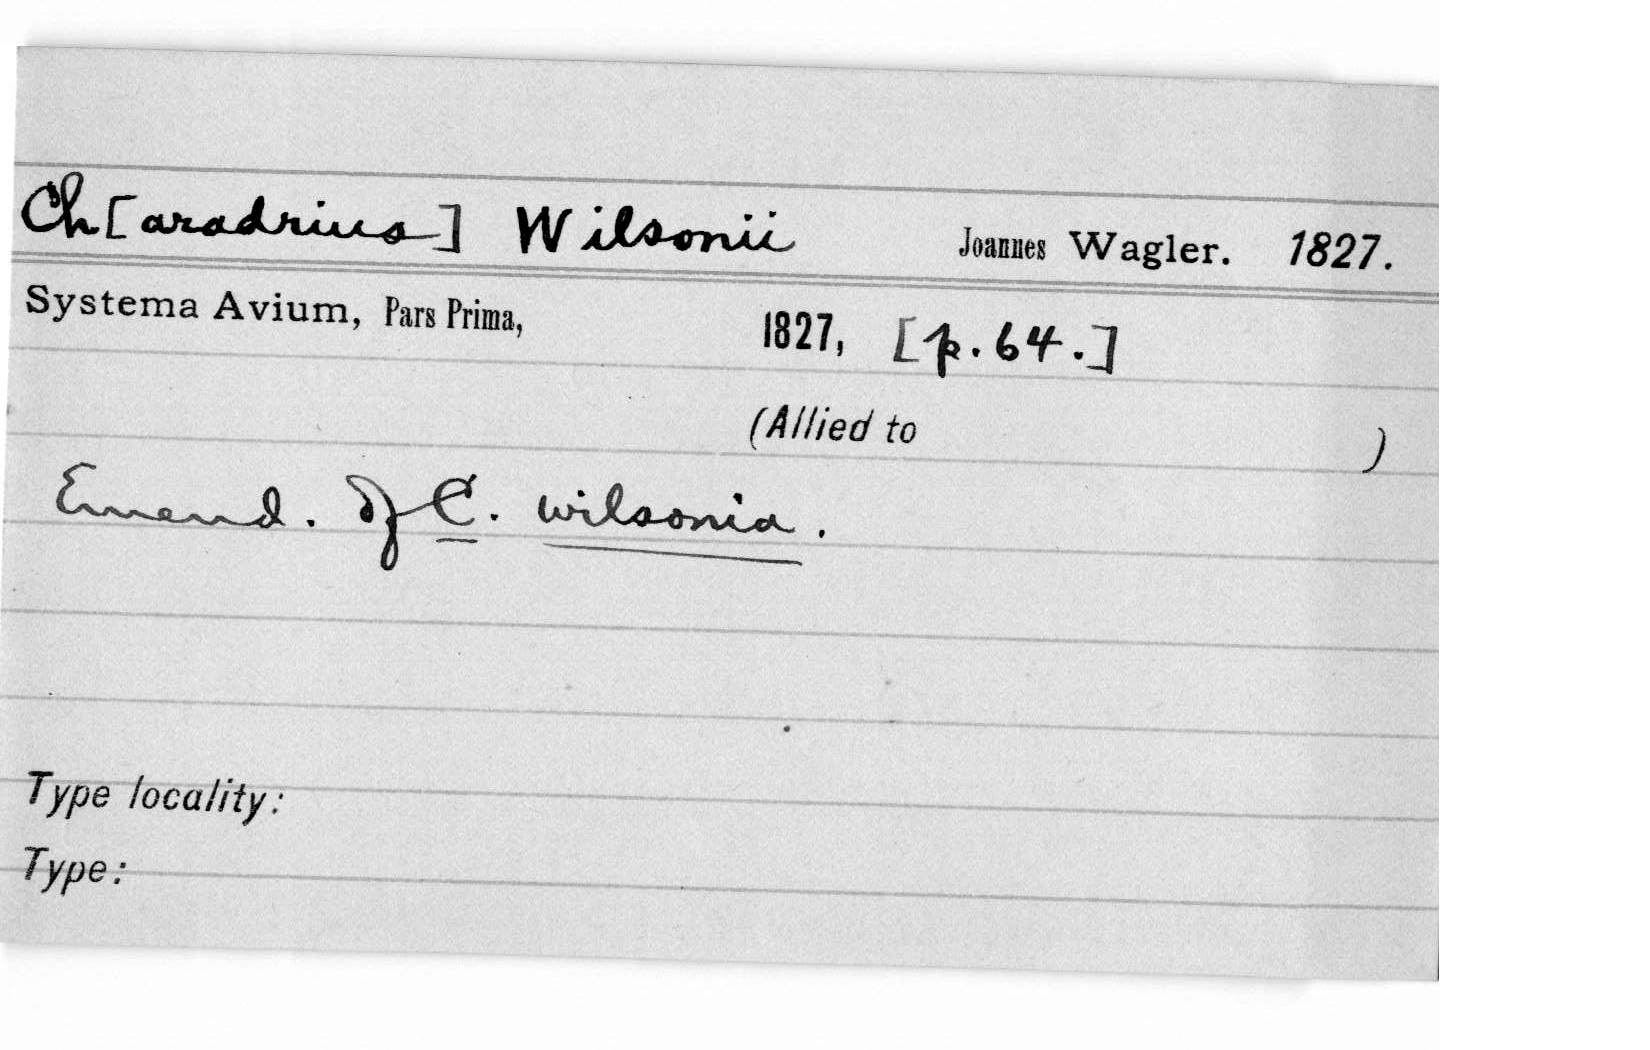 Ch[aradrius] Wilsonii Joannes Wagler. 1827.
Systema Avium, Pars Prima, 1827, [p. 64.]
(Allied to )
Emend. of C. wilsonia.
Type locality:
Type: